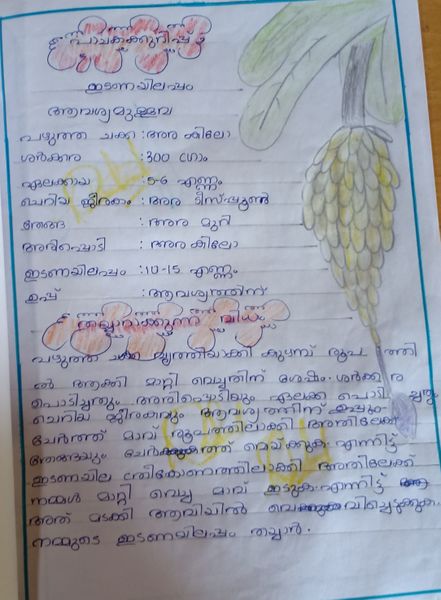 പാചകക്കുറിപ്പ്
ഇടണയിലപ്പം
ആവശ്യമുള്ളവ
പഴുത്ത ചക്ക : അര കിലോ
ശർക്കര : 300 ഗ്രാം
ഏലക്കായ : 5-6 എണ്ണം
ചെറിയ ജീരകം : അര ടീസ്പൂൺ
തേങ്ങ : അര മുറി
അരിപ്പൊടി : അരകിലോ
ഇടണയിലപ്പം : 10-15 എണ്ണം
ഉപ്പ് : ആവശ്യത്തിന്
തയ്യാറാക്കുന്ന വിധം
പഴുത്ത ചക്ക വൃത്തിയാക്കി കുഴമ്പ് രൂപ ത്തി
ൽ ആക്കി മാറ്റി വെച്ചതിന് ശേഷം ശർക്ക ര
പൊടിച്ചതും അരിപ്പൊടിയും ഏലക്ക പൊടി ച്ചതും
ചെറിയ ജീരകവും ആവശ്യത്തിന് ഉപ്പും
ചേർത്ത് മാവ് രൂപത്തിലാക്കി അതിലേക്ക്
തേങ്ങയും ചേർക്കുകത്ത് വെയ്ക്കുക. എന്നിട്ട്
ഇടണയില ത്രികോണത്തിലാക്കി അതിലേക്ക്
നമ്മൾ മാറ്റി വെച്ച മാവ് ഇടുക. എന്നിട്ട്
അത് മടക്കി ആവിയിൽ വേവിച്ചെടുക്കുക.
നമ്മുടെ ഇടണയിലപ്പം തയ്യാർ.